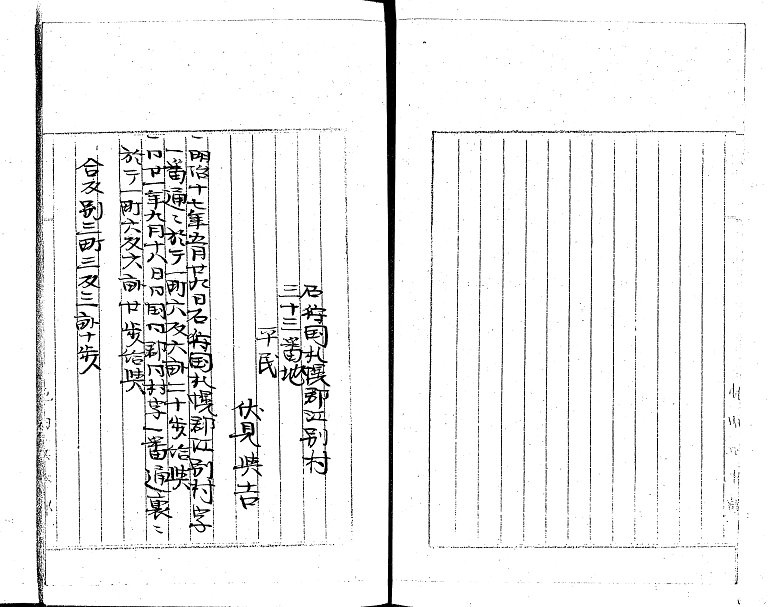 石狩国札幌郡江別村
三十三番地
平民
伏見與吉
一明治十七年五月廿九日石狩国札幌郡江別村字
一番通ニ於テ一町六反六畝二十歩給與
一同廿一年九月十八日同国同郡同村字一番通裏ニ
於テ一町六反六畝廿歩給與
合反別三町三反三畝十歩